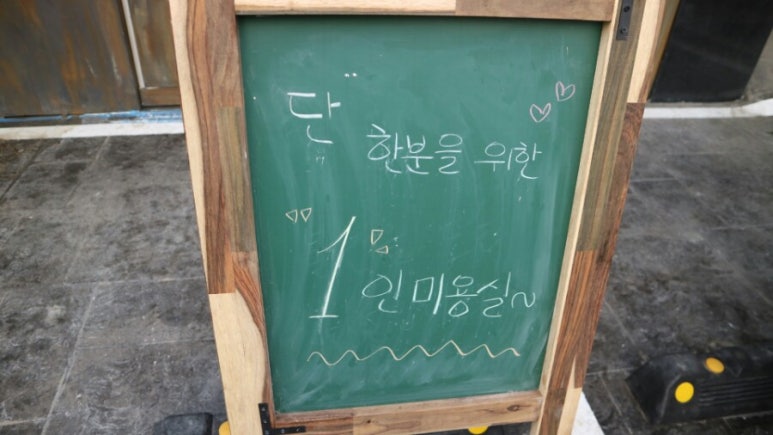 단
한분을 위한
"1"
인 미용실~